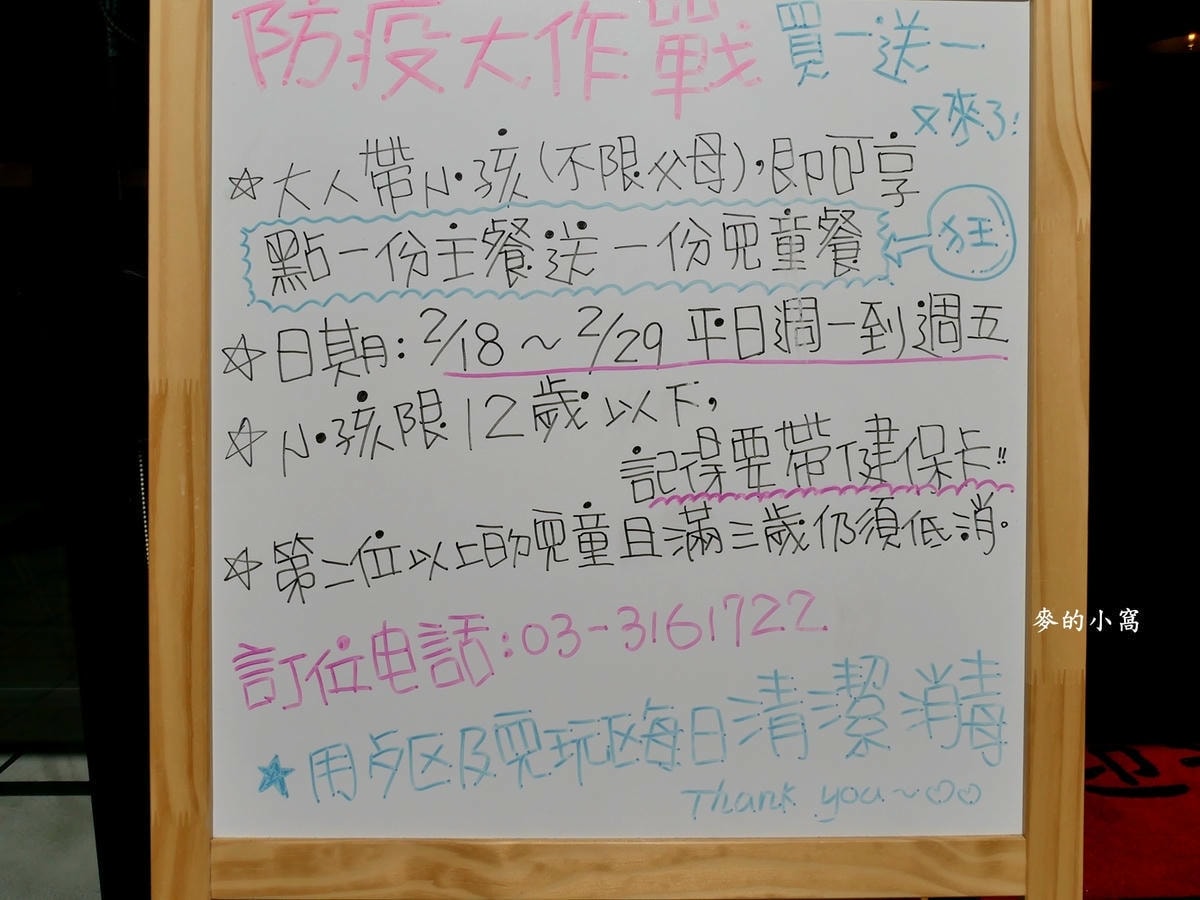 防疫大作戰 買一送一
又來了!
☆大人帶小孩(不限父母),即可享
點一份主餐送一份兒童餐 狂
☆日期:2/18～2/29 平日週一到週五
☆小孩限12歲以下,
記得要帶健保卡!!
☆第二位以上的兒童且滿三歲仍須低消.
訂位电話:03-3161722
★用歺区及兒玩區每日清潔消毒
Thank you～♡♡
麥的小窩